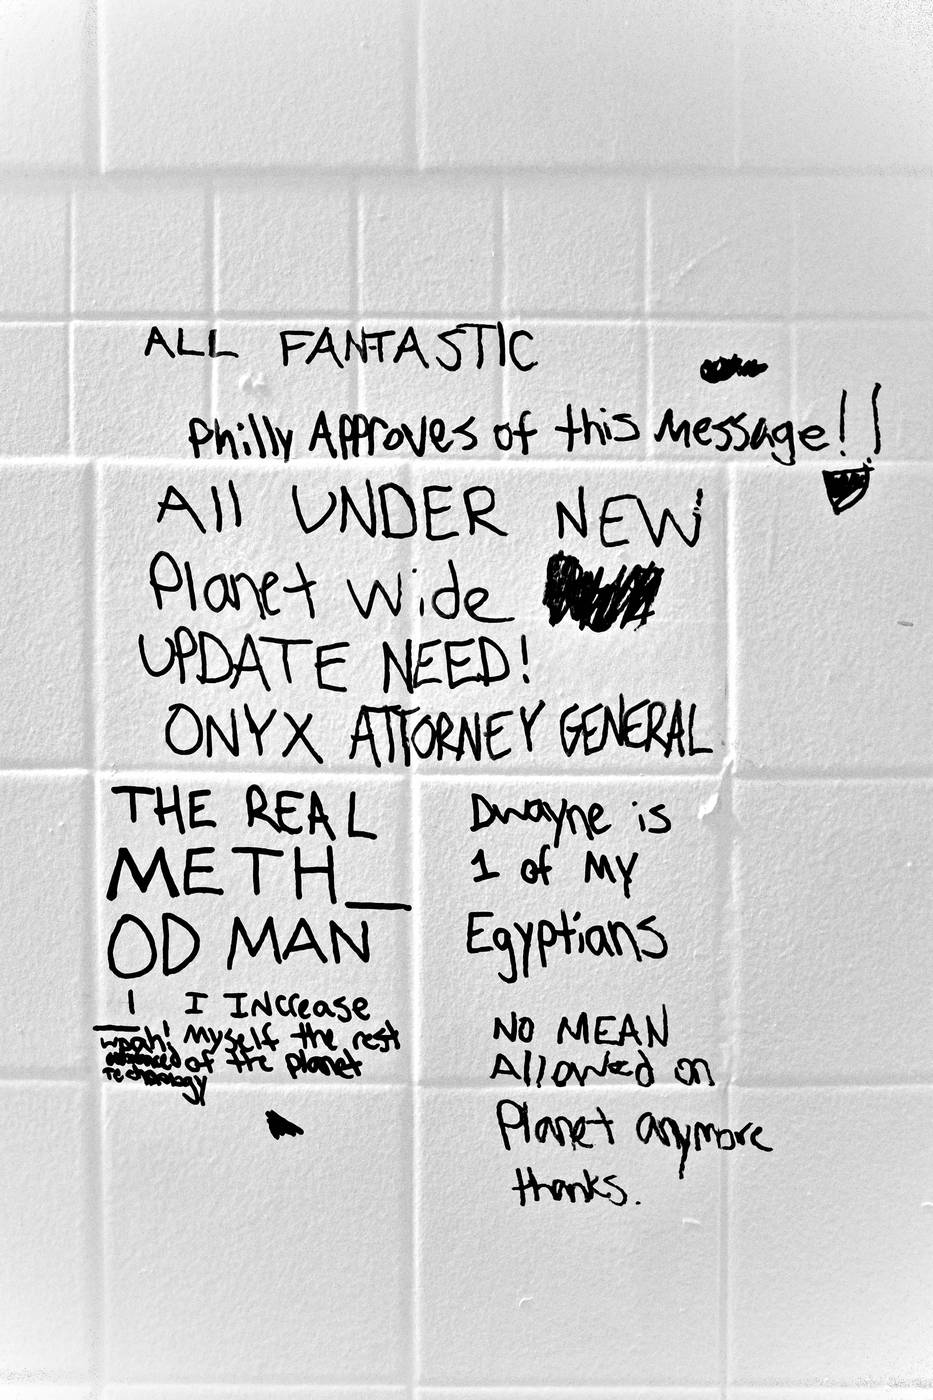 ALL FANTASTIC
Philly Approves of this Message!!
All UNDER NEW
Planet wide
UPDATE NEED!
ONYX ATTORNEY GENERAL
THE REAL
METH_
OD MAN
I I INcrease
Myself the rest
of the planet
woah!
Technology
Dwayne is
1 of My
Egyptians
NO MEAN
Allowed on
Planet anymore
thanks.